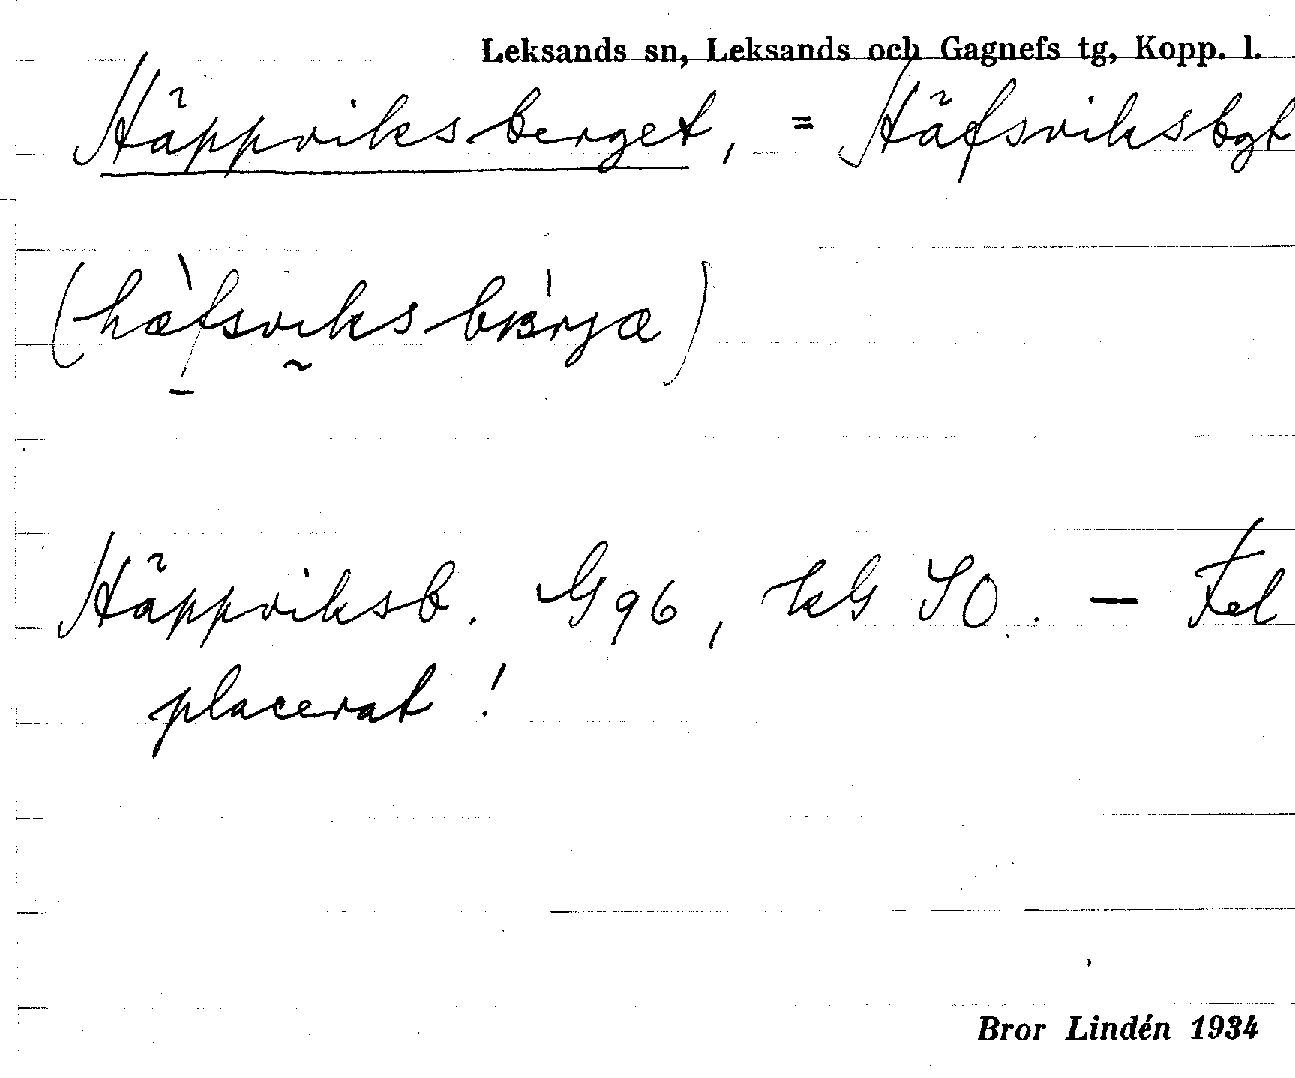 Leksands sn, Leksands och Gagnefs tg, Kopp. l.
Häppviksberget, = Häfsviksbgt
(hæ̀fsviks bærjæ)
Häppviksb. G96, kG SO. — Fel
placerat!
Bror Lindén 1934